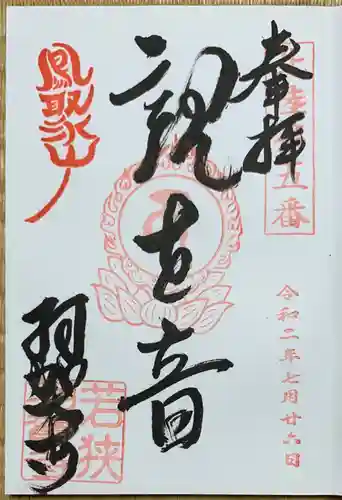 奉拝
五番
観世音
令和二年七月廿六日
鳳聚山
羽賀寺
若狭